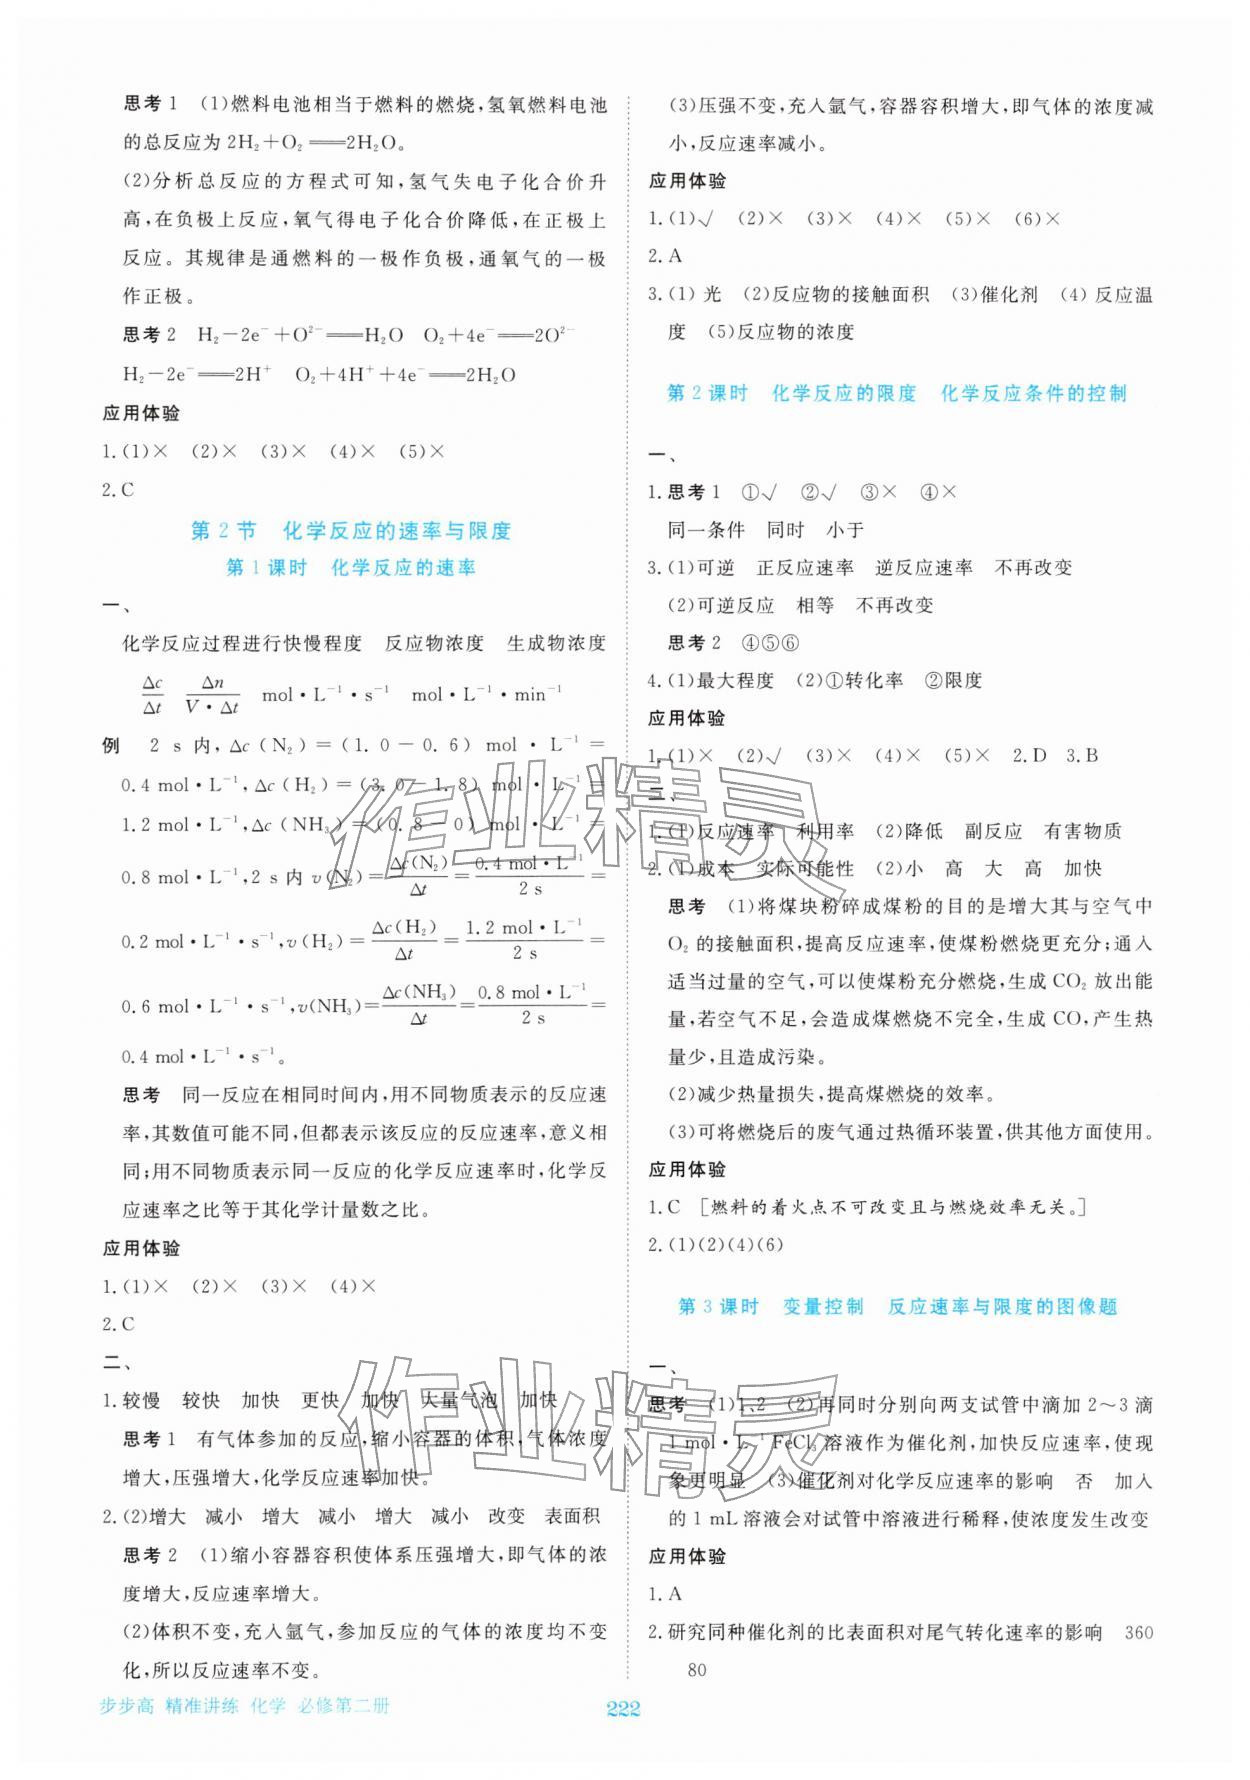 思考1 (1)燃料电池相当于燃料的燃烧,氢氧燃料电池
的总反应为 2H₂+O₂══2H₂O。
(2)分析总反应的方程式可知,氢气失电子化合价升
高,在负极上反应,氧气得电子化合价降低,在正极上
反应。其规律是通燃料的一极作负极,通氧气的一极
作正极。
思考2 H₂-2e⁻+O²⁻══H₂O O₂+4e⁻══2O²⁻
H₂-2e⁻══2H⁺ O₂+4H⁺+4e⁻══2H₂O
应用体验
1.(1)× (2)× (3)× (4)× (5)×
2.C
第2节 化学反应的速率与限度
第1课时 化学反应的速率
一、
化学反应过程进行快慢程度 反应物浓度 生成物浓度
Δc/Δt Δn/(V·Δt) mol·L⁻¹·s⁻¹ mol·L⁻¹·min⁻¹
例 2 s内,Δc(N₂)=(1.0-0.6) mol·L⁻¹=
0.4 mol·L⁻¹,Δc(H₂)=(3.0-1.8) mol·L⁻¹=
1.2 mol·L⁻¹,Δc(NH₃)=(0.8-0) mol·L⁻¹=
0.8 mol·L⁻¹,2 s内 v(N₂)=Δc(N₂)/Δt=0.4 mol·L⁻¹/2 s=
0.2 mol·L⁻¹·s⁻¹,v(H₂)=Δc(H₂)/Δt=1.2 mol·L⁻¹/2 s=
0.6 mol·L⁻¹·s⁻¹,v(NH₃)=Δc(NH₃)/Δt=0.8 mol·L⁻¹/2 s=
0.4 mol·L⁻¹·s⁻¹。
思考 同一反应在相同时间内,用不同物质表示的反应速
率,其数值可能不同,但都表示该反应的反应速率,意义相
同;用不同物质表示同一反应的化学反应速率时,化学反
应速率之比等于其化学计量数之比。
应用体验
1.(1)× (2)× (3)× (4)×
2.C
二、
1.较慢 较快 加快 更快 加快 大量气泡 加快
思考1 有气体参加的反应,缩小容器的体积,气体浓度
增大,压强增大,化学反应速率加快。
2.(2)增大 减小 增大 减小 增大 减小 改变 表面积
思考2 (1)缩小容器容积使体系压强增大,即气体的浓
度增大,反应速率增大。
(2)体积不变,充入氩气,参加反应的气体的浓度均不变
化,所以反应速率不变。
(3)压强不变,充入氩气,容器容积增大,即气体的浓度减
小,反应速率减小。
应用体验
1.(1)√ (2)× (3)× (4)× (5)× (6)×
2.A
3.(1)光 (2)反应物的接触面积 (3)催化剂 (4)反应温
度 (5)反应物的浓度
第2课时 化学反应的限度 化学反应条件的控制
一、
1.思考1 ①√ ②√ ③× ④×
同一条件 同时 小于
3.(1)可逆 正反应速率 逆反应速率 不再改变
(2)可逆反应 相等 不再改变
思考2 ④⑤⑥
4.(1)最大程度 (2)①转化率 ②限度
应用体验
1.(1)× (2)√ (3)× (4)× (5)× 2.D 3.B
二、
1.(1)反应速率 利用率 (2)降低 副反应 有害物质
2.(1)成本 实际可能性 (2)小 高 大 高 加快
思考 (1)将煤块粉碎成煤粉的目的是增大其与空气中
O₂的接触面积,提高反应速率,使煤粉燃烧更充分;通入
适当过量的空气,可以使煤粉充分燃烧,生成 CO₂ 放出能
量,若空气不足,会造成煤燃烧不完全,生成 CO,产生热
量少,且造成污染。
(2)减少热量损失,提高煤燃烧的效率。
(3)可将燃烧后的废气通过热循环装置,供其他方面使用。
应用体验
1.C [燃料的着火点不可改变且与燃烧效率无关。]
2.(1)(2)(4)(6)
第3课时 变量控制 反应速率与限度的图像题
一、
思考 (1)1、2 (2)再同时分别向两支试管中滴加 2～3 滴
1 mol·L⁻¹FeCl₃溶液作为催化剂,加快反应速率,使现
象更明显 (3)催化剂对化学反应速率的影响 否 加入
的 1 mL 溶液会对试管中溶液进行稀释,使浓度发生改变
应用体验
1.A
2.研究同种催化剂的比表面积对尾气转化速率的影响 360
80
步步高 精准讲练 化学 必修第二册
222
作业精灵
作业精灵